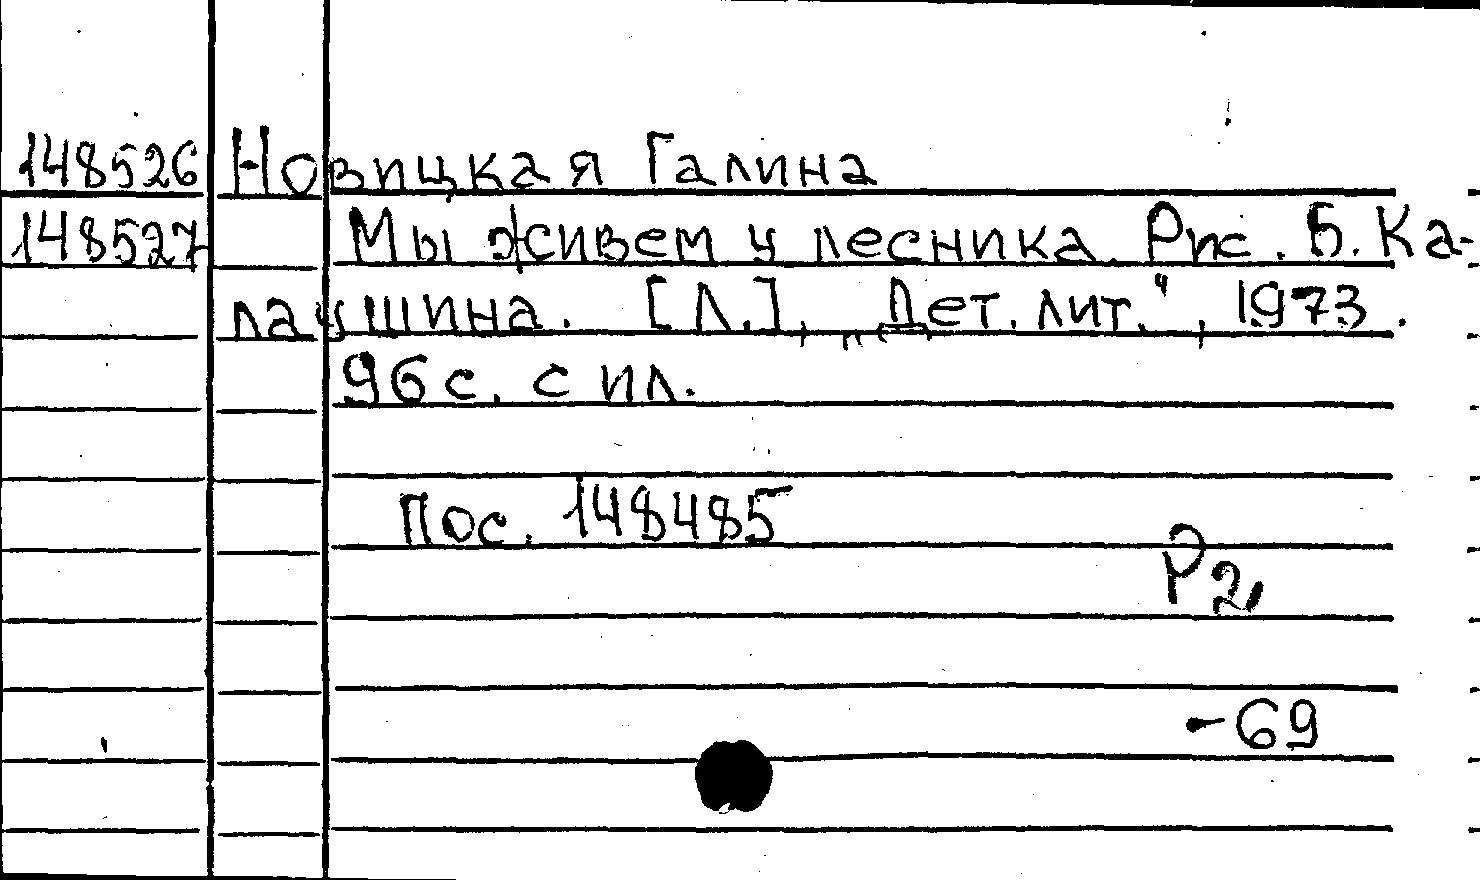 148526 Новицкая Галина
148527 Мы живем у лесника. Рис. Б. Ка-
лаушина. [Л.], „Дет. лит.“, 1973.
96 с. с ил.
Пос. 148485
Р2
-69